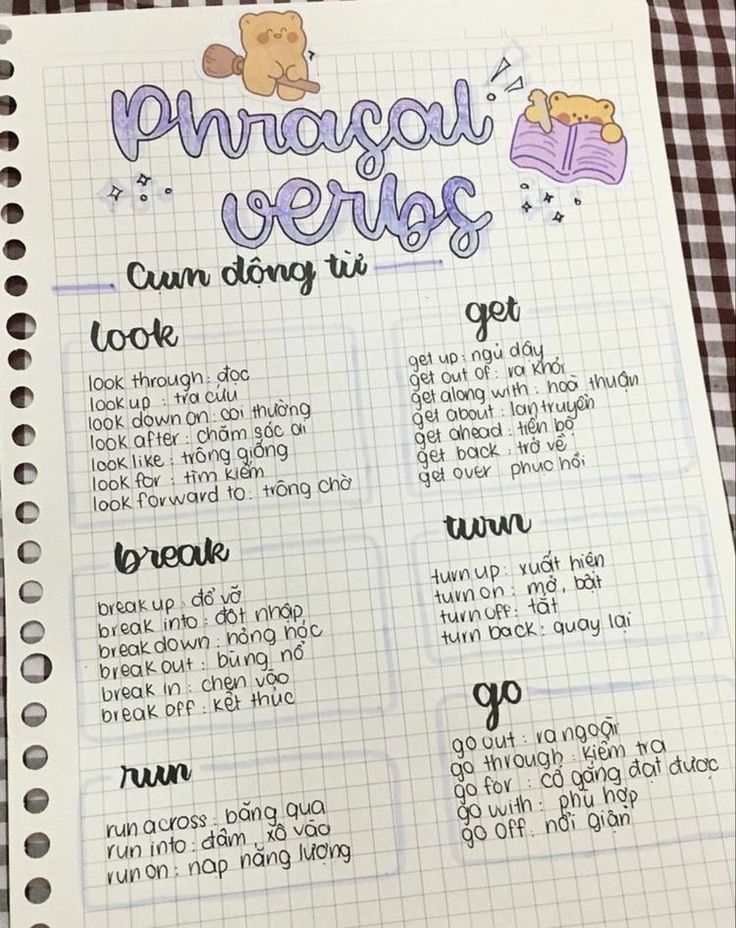 Phrasal
verbs
Cụm động từ
look
look through : đọc
look up : tra cứu
look down on : coi thường
look after : chăm sóc ai
look like : trông giống
look for : tìm kiếm
look forward to : trông chờ
get
get up : ngủ dậy
get out of : ra khỏi
get along with : hoà thuận
get about : lan truyền
get ahead : tiến bộ
get back : trở về
get over phục hồi
break
break up : đổ vỡ
break into : đột nhập
break down : hỏng hóc
break out : bùng nổ
break in : chen vào
break off : kết thúc
turn
turn up : xuất hiện
turn on : mở, bật
turn off : tắt
turn back : quay lại
run
run across : băng qua
run into : đâm, xô vào
run on : nạp năng lượng
go
go out : ra ngoài
go through : kiểm tra
go for : cố gắng đạt được
go with : phù hợp
go off : nổi giận